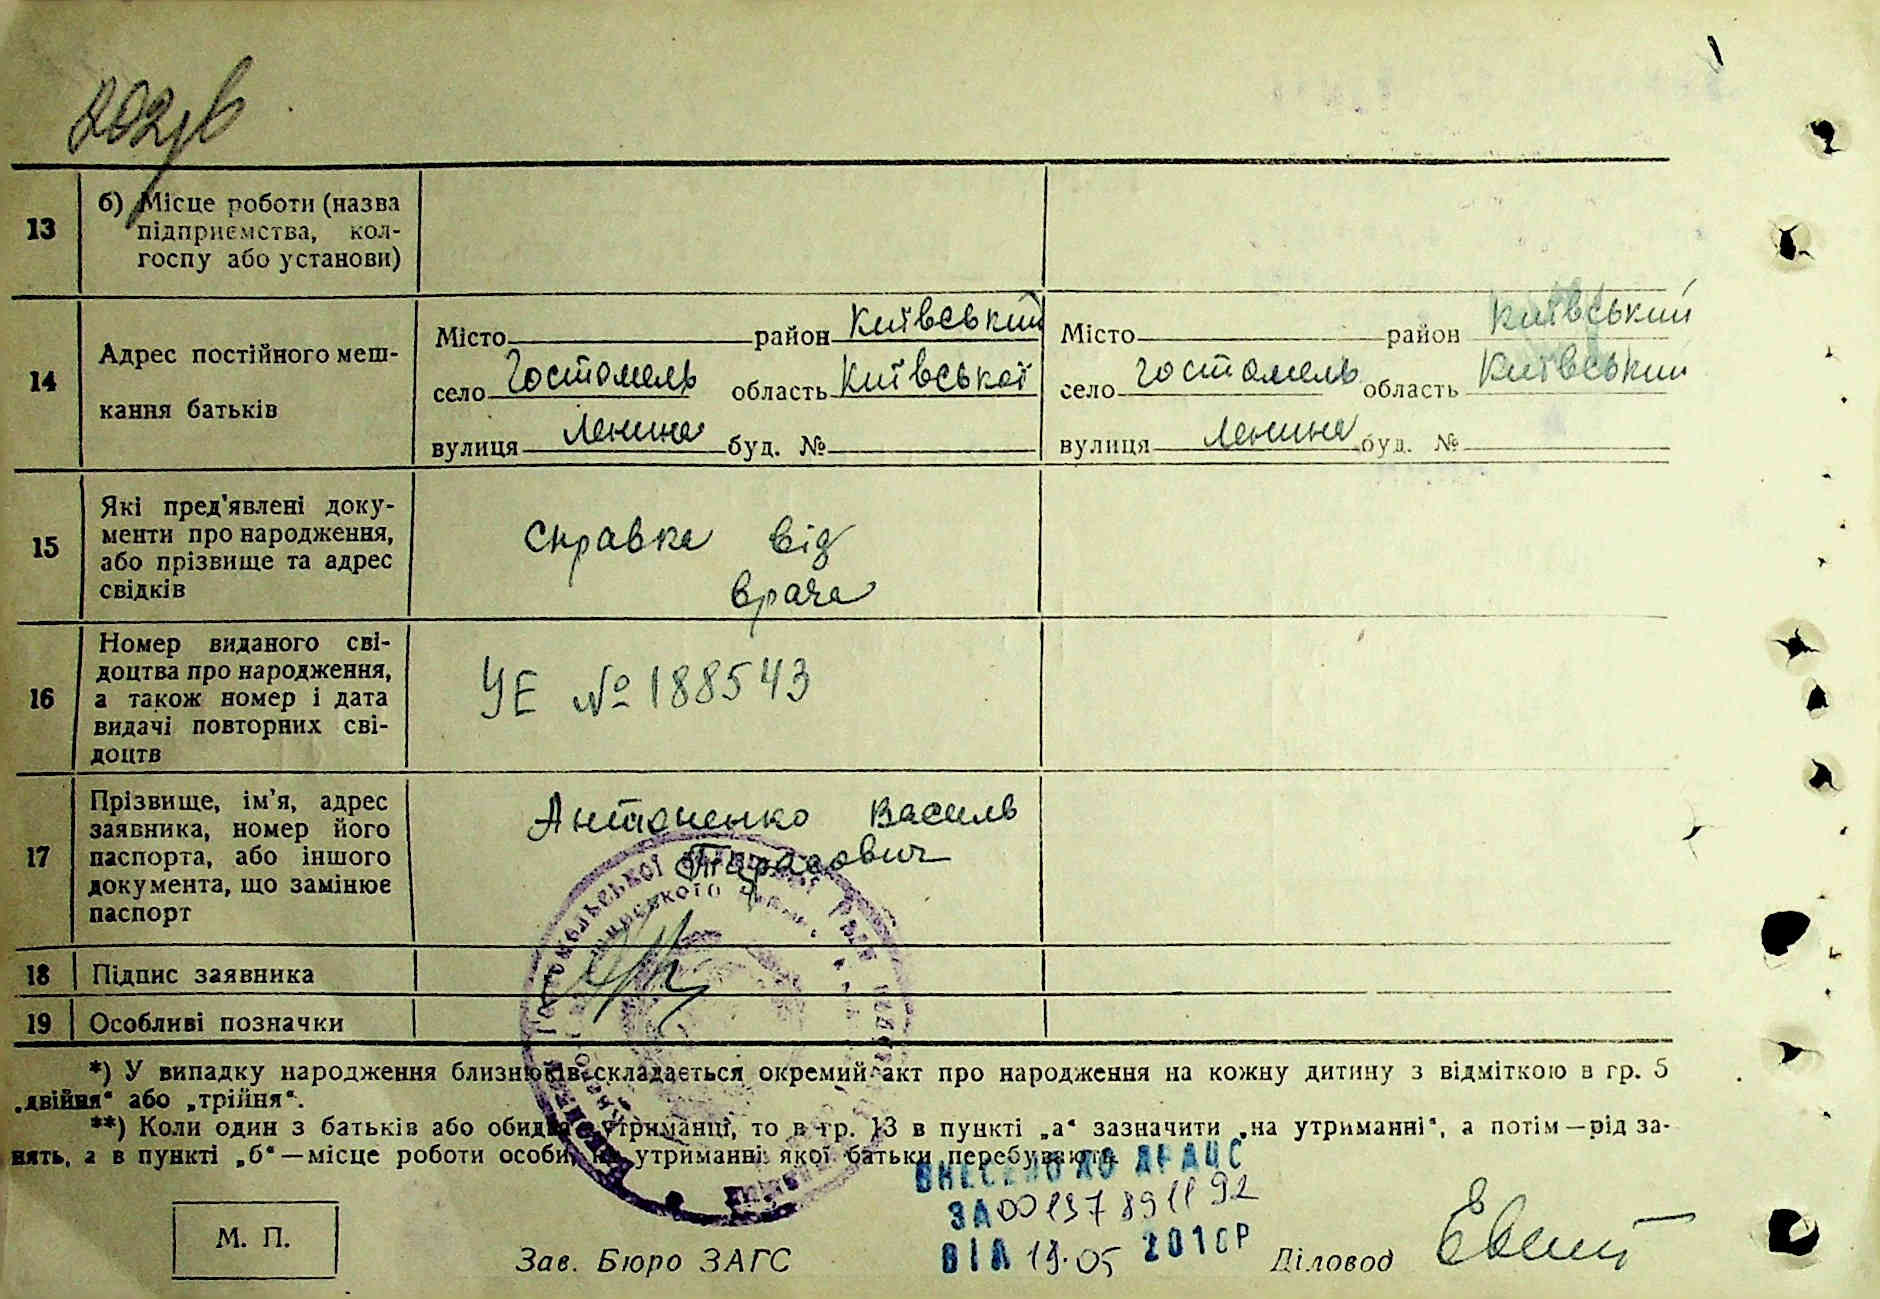 13
б) Місце роботи (назва
підприємства, кол-
госпу або установи)
14
Адрес постійного меш-
кання батьків
Місто район Київський
село Гостомель область Київської
вулиця Леніна буд. №
Місто район Київський
село Гостомель область Київський
вулиця Леніна буд. №
15
Які пред'явлені доку-
менти про народження,
або прізвище та адрес
свідків
справка від
врача
16
Номер виданого сві-
доцтва про народження,
а також номер і дата
видачі повторних сві-
доцтв
УЕ № 188543
17
Прізвище, ім'я, адрес
заявника, номер його
паспорта, або іншого
документа, що замінює
паспорт
Антоненко Василь
Тарасович
18 Підпис заявника
19 Особливі позначки
*) У випадку народження близнюків складається окремий акт про народження на кожну дитину з відміткою в гр. 5
„двійня“ або „трійня“.
**) Коли один з батьків або обидва утриманці, то в гр. 13 в пункті „а“ зазначити „на утриманні“, а потім — рід за-
нять, а в пункті „б“ — місце роботи особи, на утриманні якої батьки перебувають.
ВНЕСЕНО ДО ДРАЦС
ЗА 00137891192
ВІД 19.05 2010Р
М. П.
Зав. Бюро ЗАГС
Діловод